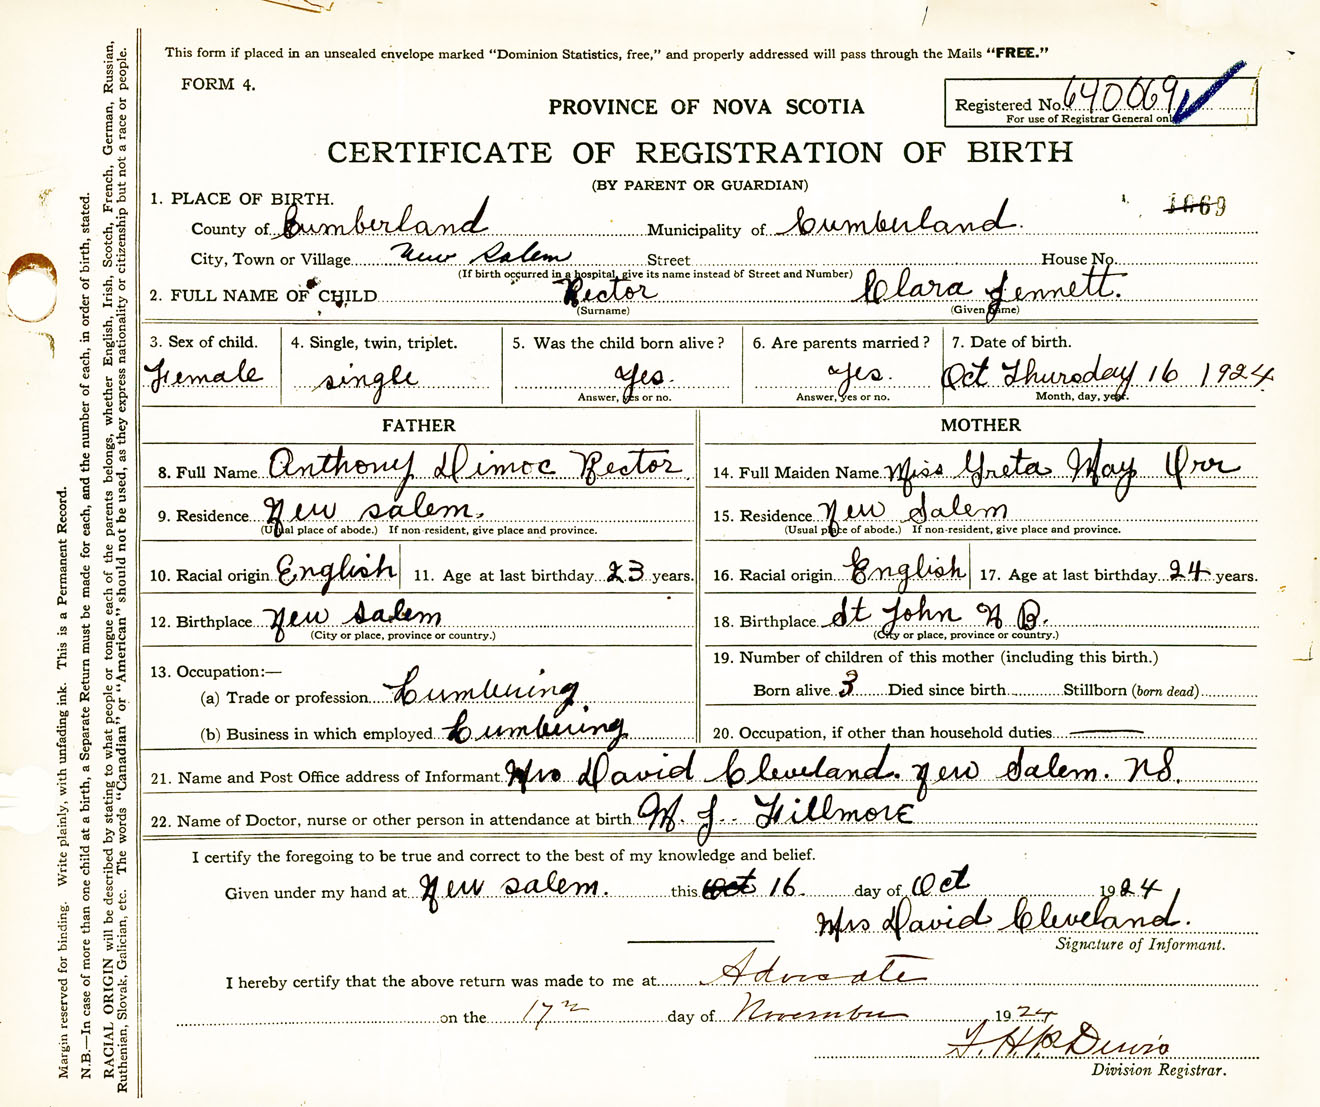 This form if placed in an unsealed envelope marked "Dominion Statistics, free," and properly addressed will pass through the Mails "FREE."
FORM 4.
PROVINCE OF NOVA SCOTIA
Registered No. 640669
For use of Registrar General only
CERTIFICATE OF REGISTRATION OF BIRTH
(BY PARENT OR GUARDIAN)
1069
1. PLACE OF BIRTH.
County of Cumberland Municipality of Cumberland.
City, Town or Village New Salem Street House No.
(If birth occurred in a hospital, give its name instead of Street and Number)
2. FULL NAME OF CHILD Rector Clara Jennett.
(Surname) (Given name)
3. Sex of child. 4. Single, twin, triplet. 5. Was the child born alive? 6. Are parents married? 7. Date of birth.
Female single Yes. Yes. Oct Thursday 16 1924
Answer, yes or no. Answer, yes or no. Month, day, year.
FATHER
8. Full Name Anthony Dimoc Rector
9. Residence New Salem.
(Usual place of abode.) If non-resident, give place and province.
10. Racial origin English 11. Age at last birthday 23 years.
12. Birthplace New Salem
(City or place, province or country.)
13. Occupation:—
(a) Trade or profession Lumbering
(b) Business in which employed Lumbering
MOTHER
14. Full Maiden Name Miss Greta May Orr
15. Residence New Salem
(Usual place of abode.) If non-resident, give place and province.
16. Racial origin English 17. Age at last birthday 24 years.
18. Birthplace St John N B.
(City or place, province or country.)
19. Number of children of this mother (including this birth.)
Born alive 3 Died since birth Stillborn (born dead)
20. Occupation, if other than household duties —
21. Name and Post Office address of Informant Mrs David Cleveland. New Salem. NS.
22. Name of Doctor, nurse or other person in attendance at birth M. J. Fillmore
I certify the foregoing to be true and correct to the best of my knowledge and belief.
Given under my hand at New Salem. this Oct 16 day of Oct 1924
Mrs David Cleveland.
Signature of Informant.
I hereby certify that the above return was made to me at Advocate
on the 17 day of November 1924
Division Registrar.
Margin reserved for binding. Write plainly, with unfading ink. This is a Permanent Record.
N.B.—In case of more than one child at a birth, a Separate Return must be made for each, and the number of each, in order of birth, stated.
RACIAL ORIGIN will be described by stating to what people or tongue each of the parents belongs, whether English, Irish, Scotch, French, German, Russian,
Ruthenian, Slovak, Galician, etc. The words "Canadian" or "American" should not be used, as they express nationality or citizenship but not a race or people.